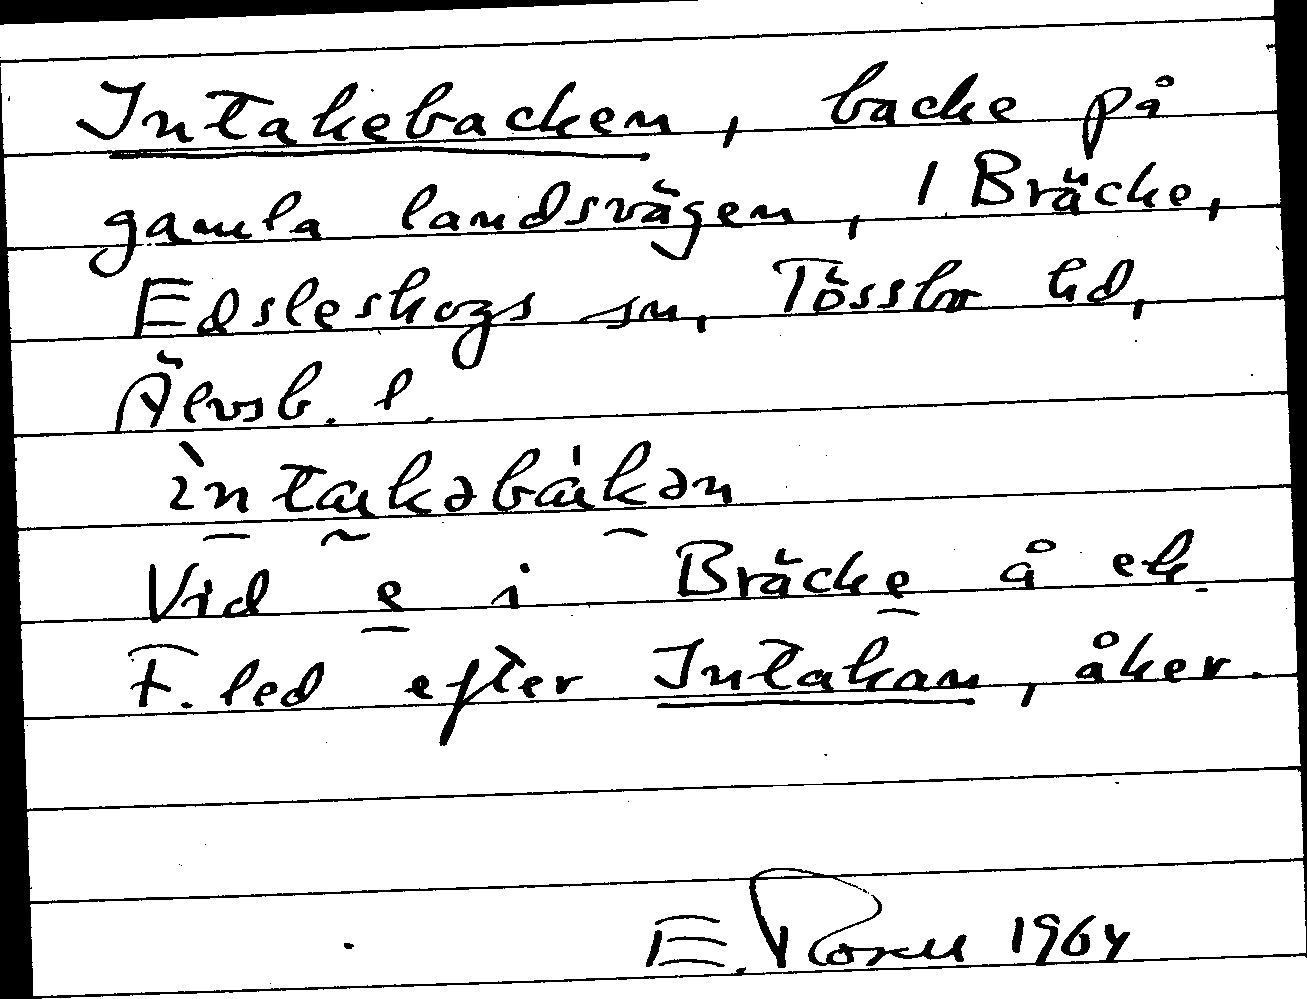 Intakebacken, backe på
gamla landsvägen, 1 Bräcke,
Edsleskogs sn, Tössbo hd,
Älvsb. l.
ìntakəbákən
Vid e i Bräcke å ek.
F. led efter Intakan, åker.
E. 1964